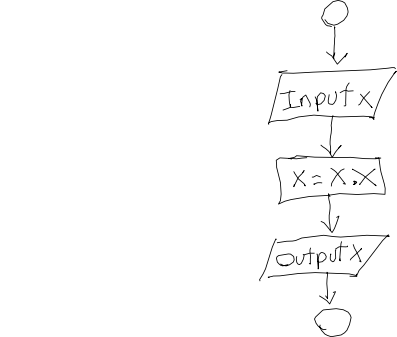 Input x
X = X.X
Output X